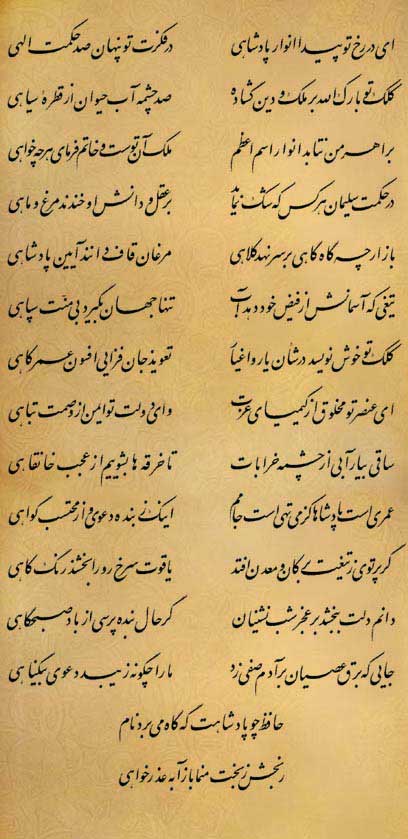 ای در رخ تو پیدا انوار پادشاهی در فکرت تو پنهان صد حکمت الهی
کلک تو بارک الله بر ملک و دین گشاده صد چشمه آب حیوان از قطره سیاهی
بر اهرمن نتابد انوار اسم اعظم ملک آن توست و خاتم فرمای هر چه خواهی
در حکمت سلیمان هر کس که شک نماید بر عقل و دانش او خندند مرغ و ماهی
باز ار چه گاه گاهی بر سر نهد کلاهی مرغان قاف دانند آیین پادشاهی
تیغی که آسمانش از فیض خود دهد آب تنها جهان بگیرد بی منت سپاهی
کلک تو خوش نویسد در شان یار و اغیار تعویذ جان فزایی افسون عمر کاهی
ای عنصر تو مخلوق از کیمیای عزت و ای دولت تو ایمن از وصمت تباهی
ساقی بیار آبی از چشمه خرابات تا خرقه‌ها بشوییم از عجب خانقاهی
عمری است پادشاها کز می تهی است جامم اینک ز بنده دعوی و از محتسب گواهی
گر پرتوی ز تیغت بر کان و معدن افتد یاقوت سرخ رو را بخشند رنگ کاهی
دانم دلت ببخشد بر عجز شب نشینان گر حال بنده پرسی از باد صبحگاهی
جایی که برق عصیان بر آدم صفی زد ما را چگونه زیبد دعوی بی‌گناهی
حافظ چو پادشاهت گه گاه می‌برد نام
رنجش ز بخت منما باز آ به عذرخواهی